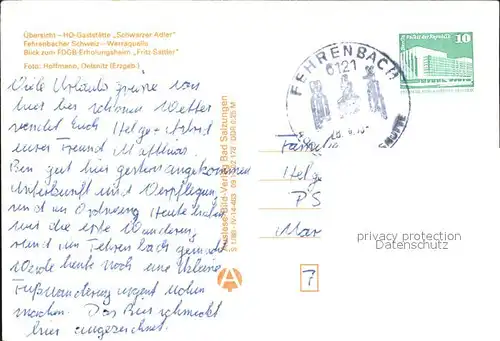 Übersicht – HO-Gaststätte „Schwarzer Adler"
Fehrenbacher Schweiz – Werraquelle
Blick zum FDGB Erholungsheim „Fritz Sattler"
Foto: Hoffmann, Oelsnitz (Erzgeb.)
Viele Urlaubsgrüsse von
hier bei schönem Wetter
sendet Euch Helga +
euer Freund Matthias.
Bin gut hier gestern angekommen
Unterkunft und Verpflegung
sind in Ordnung. Heute haben
wir die erste Wanderung
rund um Fehrenbach gemacht
Werde heute noch eine kleine
Fußwanderung
machen. Das Bier schmeckt
hier ausgezeichnet.
Auslese-Bild-Verlag Bad Salzungen
FEHRENBACH
6121
10
Fam
Helge
PS
Mar
7
privacy protection
Datenschutz